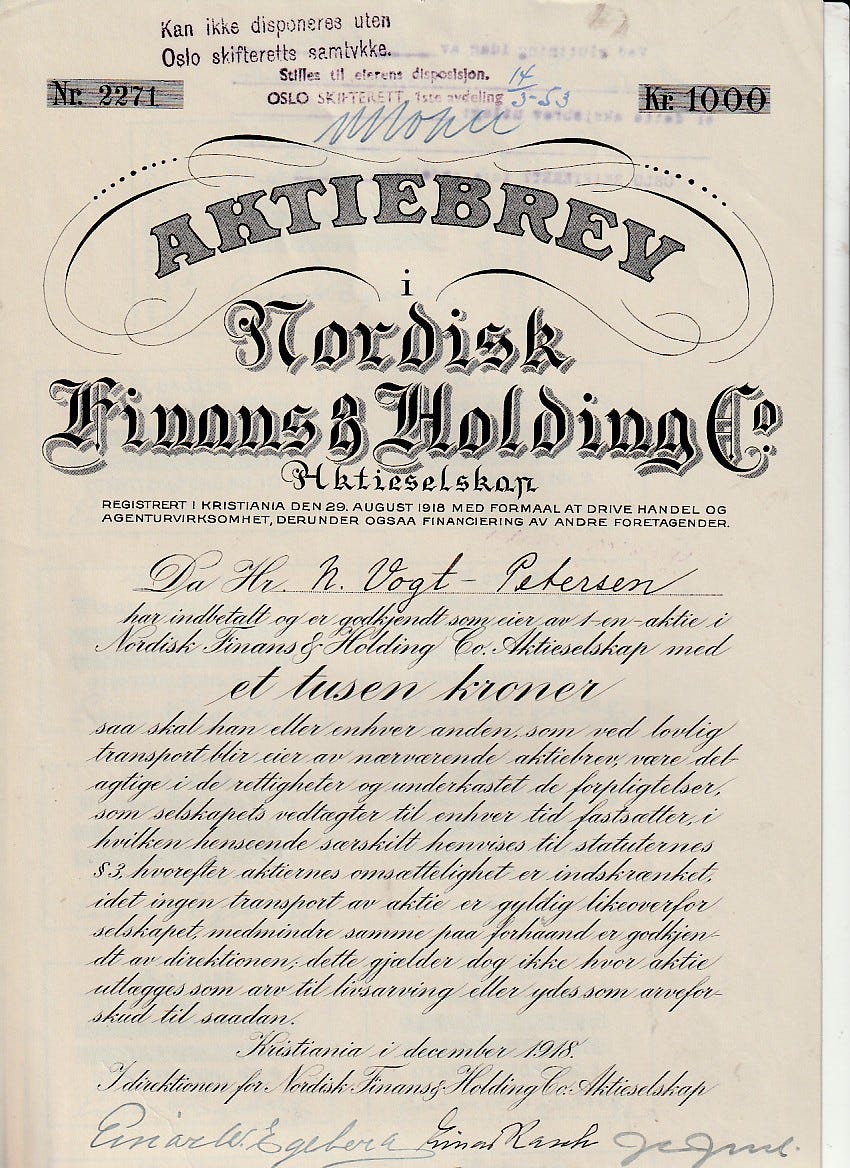 Kan ikke disponeres uten
Oslo skifteretts samtykke.
Stilles til eierens disposisjon. 14/3-53
OSLO SKIFTERETT, 1ste avdeling
Nr. 2271
Kr. 1000
AKTIEBREV
i
Nordisk
Finans & Holding Co.
Aktieselskap
REGISTRERT I KRISTIANIA DEN 29. AUGUST 1918 MED FORMAAL AT DRIVE HANDEL OG
AGENTURVIRKSOMHET, DERUNDER OGSAA FINANCIERING AV ANDRE FORETAGENDER.
Da Hr. N. Vogt - Petersen
har indbetalt og er godkjendt som eier av 1-en-aktie i
Nordisk Finans & Holding Co. Aktieselskap med
et tusen kroner
saa skal han eller enhver anden, som ved lovlig
transport blir eier av nærværende aktiebrev, være del-
agtige i de rettigheter og underkastet de forpligtelser,
som selskapets vedtægter til enhver tid fastsætter, i
hvilken henseende særskilt henvises til statuternes
§3, hvorefter aktiernes omsættelighet er indskrænket,
idet ingen transport av aktie er gyldig likeoverfor
selskapet, medmindre samme paa forhaand er godkjen-
dt av direktionen; dette gjælder dog ikke hvor aktie
utlægges som arv til livsarving eller ydes som arvefor-
skud til saadan.
Kristiania i december 1918.
I direktionen for Nordisk Finans & Holding Co. Aktieselskap
Einar W. Egeberg Einar Rasch